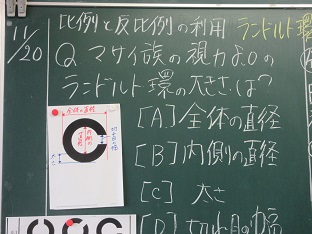 11/20
比例と反比例の利用
ランドルト環
Q マサイ族の視力8.0の
ランドルト環の大きさは?
[A] 全体の直径
[B] 内側の直径
[C] 太さ
[D] 切れ目の幅
全体の直径
内側の直径
切れ目の幅
太さ